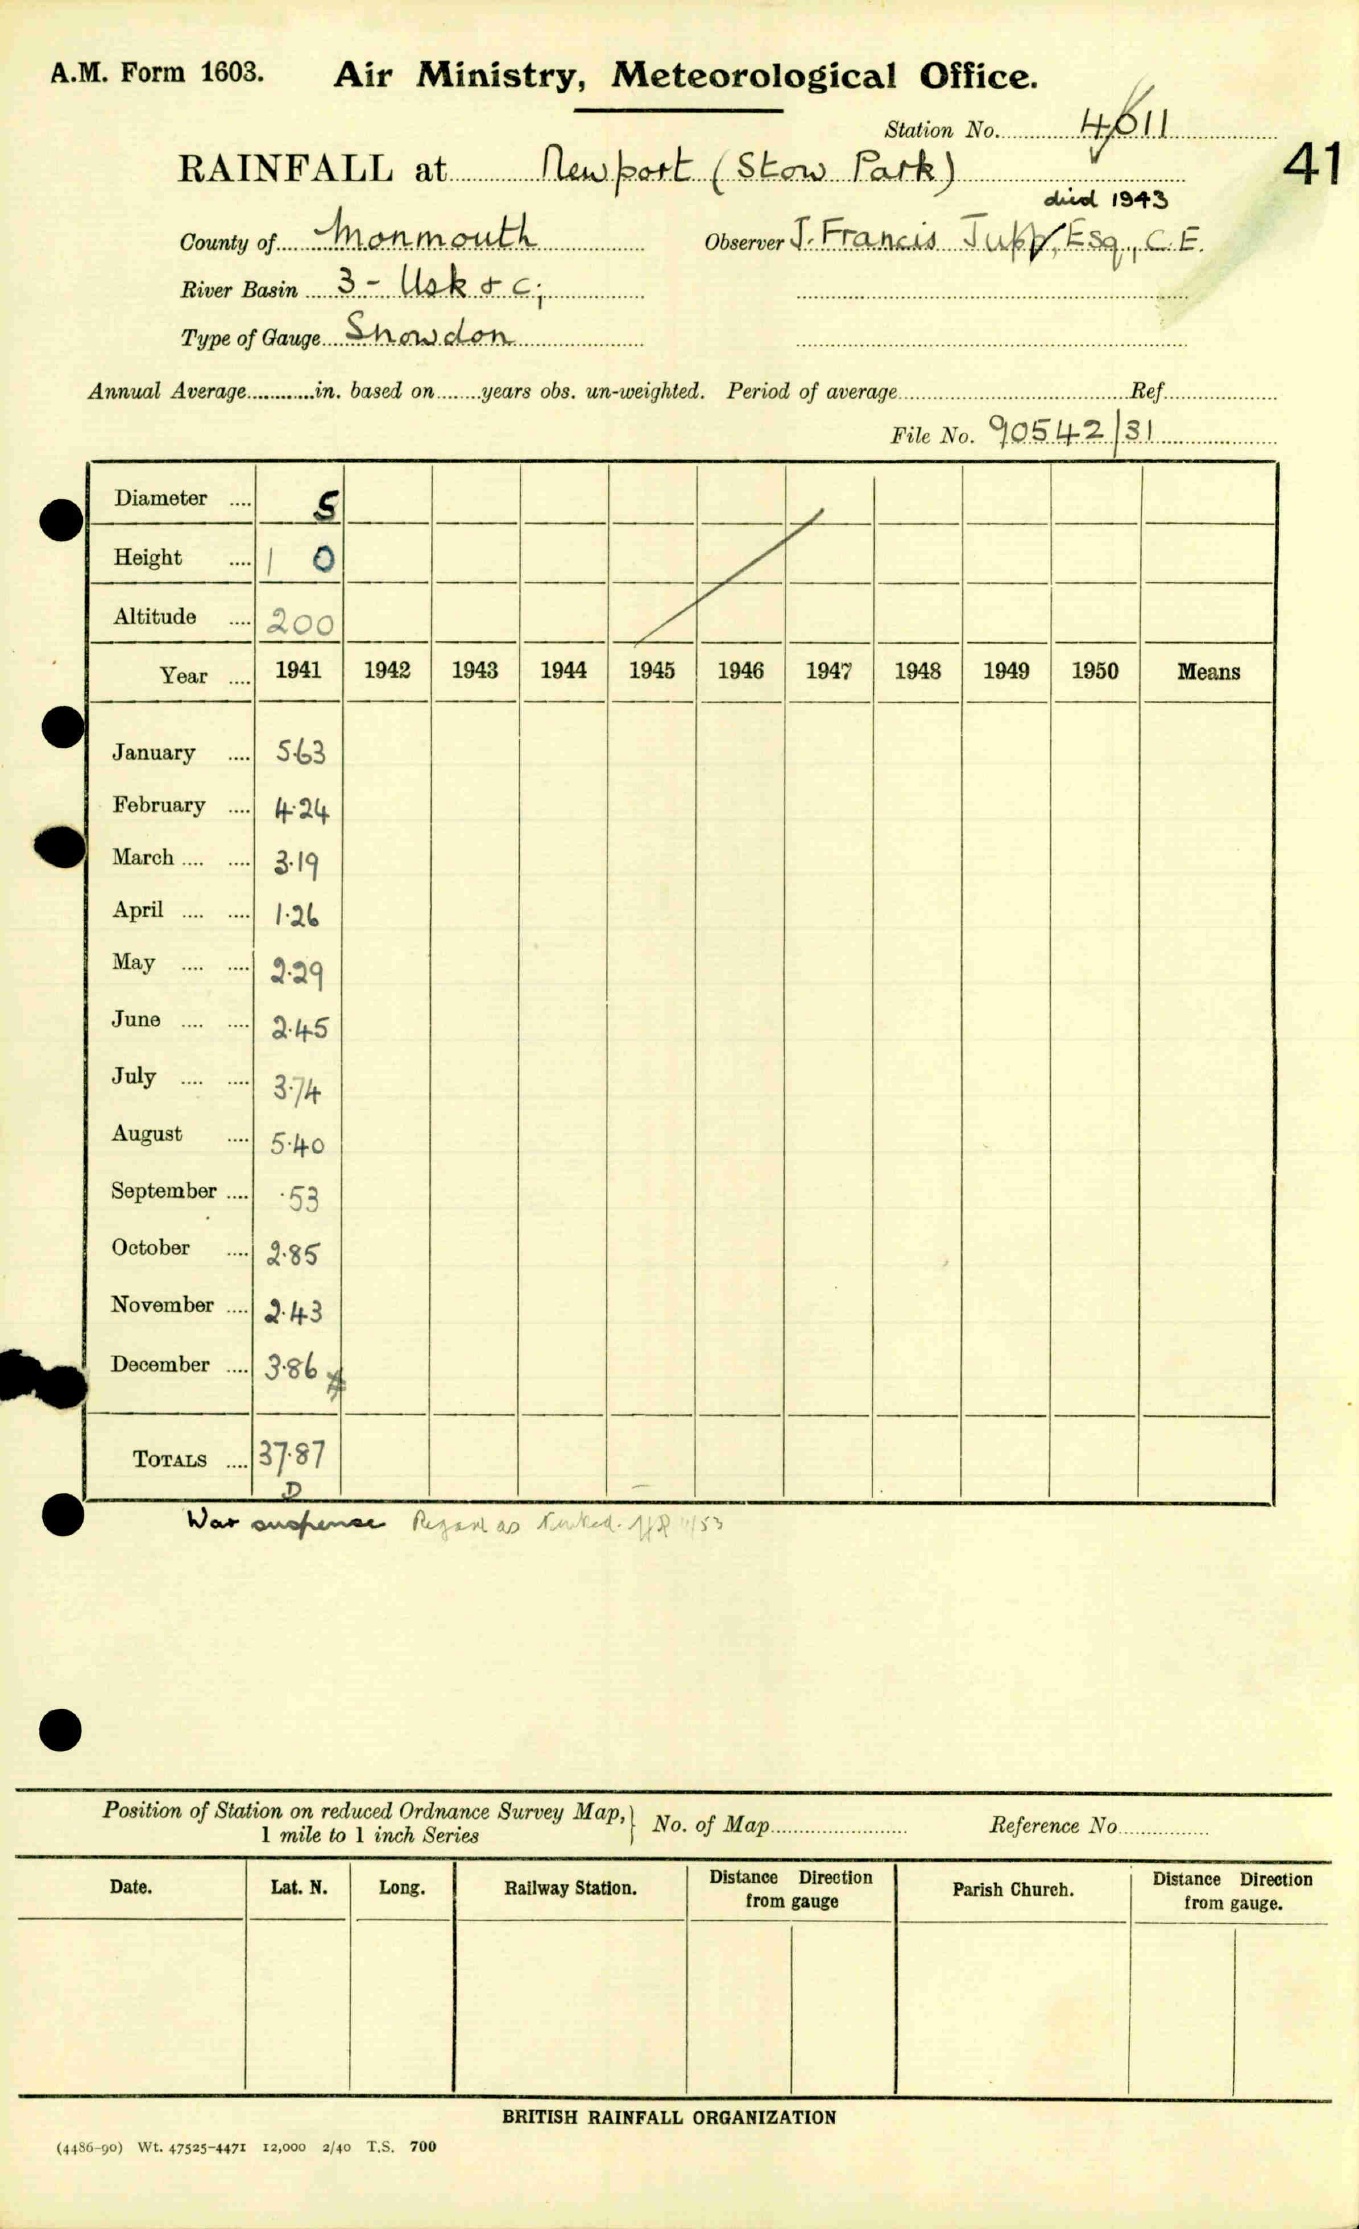 A.M. Form 1603. Air Ministry, Meteorological Office.
Station No. 4611
41
RAINFALL at Newport (Stow Park)
died 1943
County of Monmouth Observer J. Francis Jupp, Esq., C.E.
River Basin 3 - Usk & c;
Type of Gauge Snowdon
Annual Average in. based on years obs. un-weighted. Period of average Ref
File No. 90542/31
Diameter 5
Height 1 0
Altitude 200
Year 1941 1942 1943 1944 1945 1946 1947 1948 1949 1950 Means
January 5.63
February 4.24
March 3.19
April 1.26
May 2.29
June 2.45
July 3.74
August 5.40
September .53
October 2.85
November 2.43
December 3.86
TOTALS 37.87
D
War suspense Regard as
Position of Station on reduced Ordnance Survey Map,
1 mile to 1 inch Series
No. of Map Reference No
Date. Lat. N. Long. Railway Station. Distance Direction from gauge Parish Church. Distance Direction from gauge.
BRITISH RAINFALL ORGANIZATION
(4486-90) Wt. 47525-4471 12,000 2/40 T.S. 700